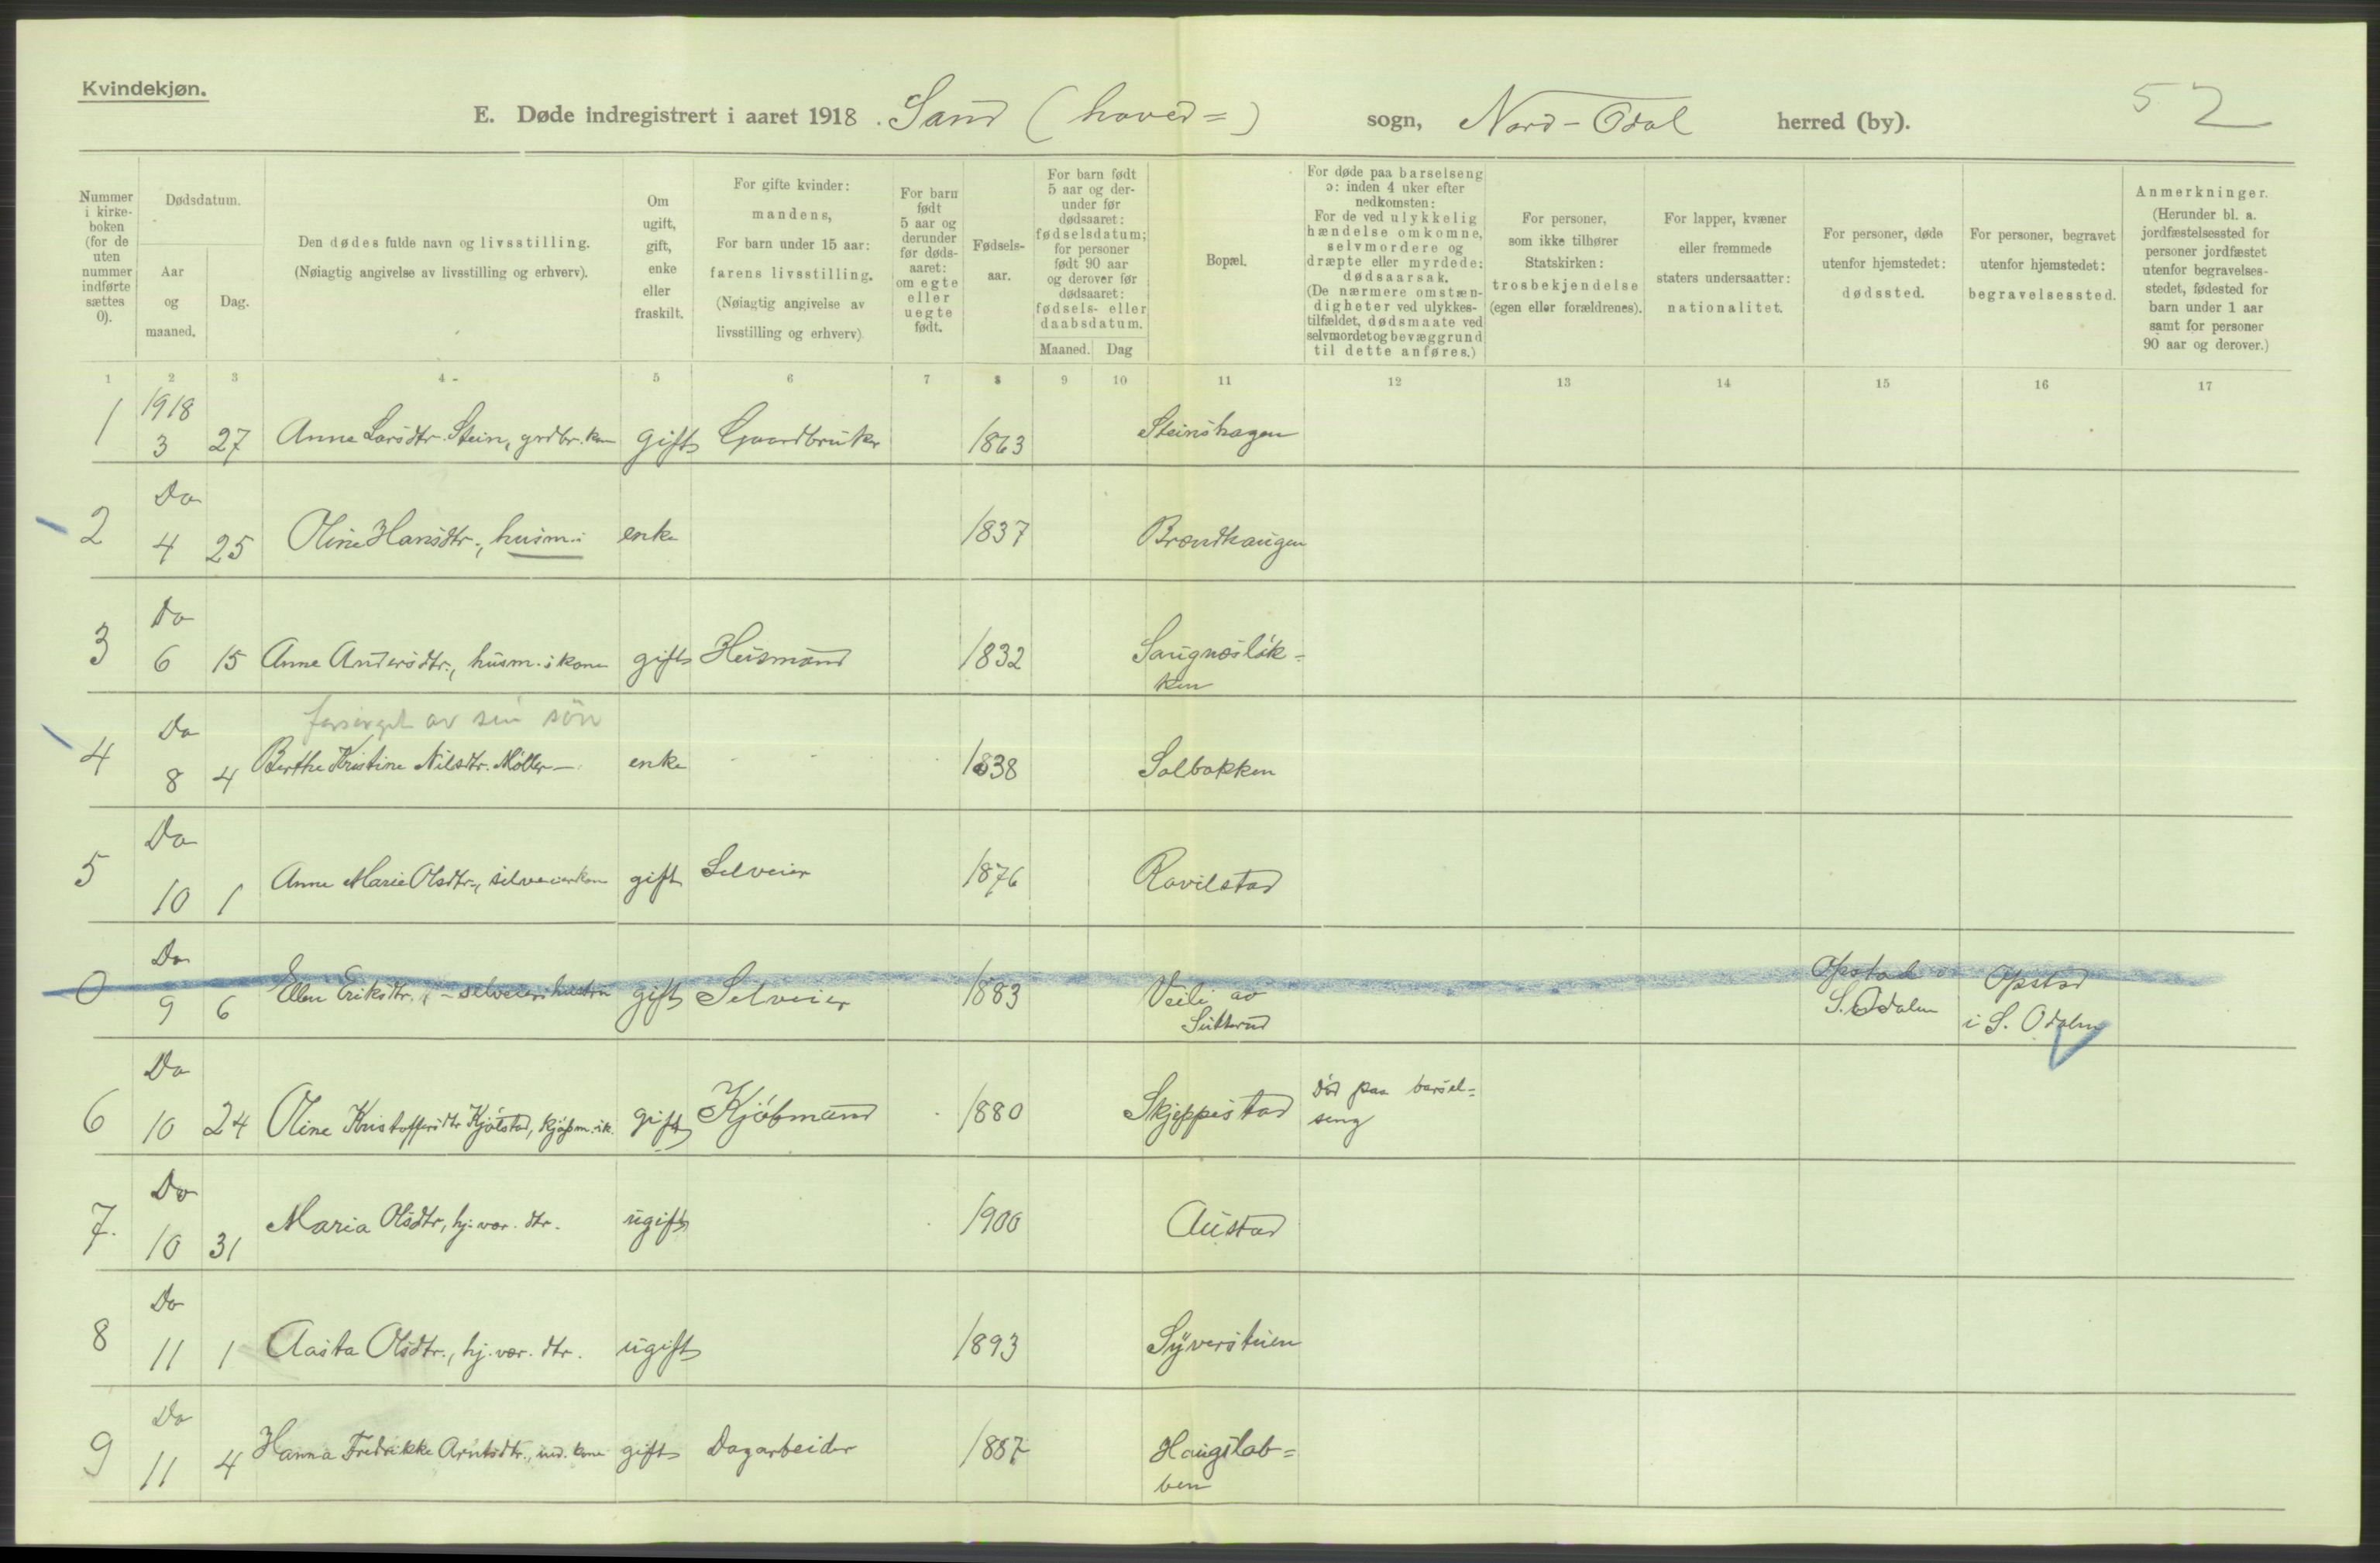 Kvindekjøn.
E. Døde indregistrert i aaret 1918. Sand (hoved=) sogn, Nord-Odal herred (by).
52
Nummer i kirke-boken (for de uten nummer indførte sættes 0).
Dødsdatum.
Aar og maaned.
Dag.
Den dødes fulde navn og livsstilling.
(Nøiagtig angivelse av livsstilling og erhverv).
Om ugift, gift, enke eller fraskilt.
For gifte kvinder:
mandens,
For barn under 15 aar:
farens livsstilling.
(Nøiagtig angivelse av
livsstilling og erhverv)
For barn født 5 aar og derunder før døds-aaret: om egte eller uegte født.
Fødsels-aar.
For barn født 5 aar og der-under før dødsaaret: fødselsdatum; for personer født 90 aar og derover før dødsaaret: fødsels- eller daabsdatum.
Maaned. Dag
Bopæl.
For døde paa barselseng ɔ: inden 4 uker efter nedkomsten: For de ved ulykkelig hændelse omkomne, selvmordere og dræpte eller myrdede: dødsaarsak. (De nærmere omstæn-digheter ved ulykkes-tilfældet, dødsmaate ved selvmordet og bevæggrund til dette anføres.)
For personer, som ikke tilhører Statskirken: trosbekjendelse (egen eller forældrenes).
For lapper, kvæner eller fremmede staters undersaatter: nationalitet.
For personer, døde utenfor hjemstedet: dødssted.
For personer, begravet utenfor hjemstedet: begravelsessted.
Anmerkninger. (Herunder bl. a. jordfæstelsessted for personer jordfæstet utenfor begravelses-stedet, fødested for barn under 1 aar samt for personer 90 aar og derover.)
1 2 3 4 5 6 7 8 9 10 11 12 13 14 15 16 17
1918
1 3 27 Anne Larsdtr. Stein, grdbr. kone gift Gaardbruker 1863 Steinshagen
Do
2 4 25 Oline Hansdtr., husm.s enke 1837 Brændhaugen
Do
3 6 15 Anne Andersdtr., husm.skone gift Husmand 1832 Saugnesløk=
ken
forsørget av sin søn
Do
4 8 4 Berthe Kristine Nilsdtr. Møller enke 1838 Solbakken
Do
5 10 1 Anne Marie Olsdtr., selveierkone gift Selveier 1876 Rovilstad
Do
0 9 6 Ellen Eriksdtr. selveiershustru gift Selveier 1883 Veili av Opstad Opstad
Sutterud S. Odalen i S. Odalen
Do
6 10 24 Oline Kristoffersdtr Kjølstad, kjøpm.sk. gift Kjøbmand 1880 Skjeppestad Død paa barsel=
seng
Do
7. 10 31 Maria Olsdtr, hj. vær. dtr. ugift 1900 Austad
Do
8 11 1 Aasta Olsdtr., hj. vær. dtr. ugift 1893 Syverstuen
Do
9 11 4 Hanna Fredrikke Arntsdtr., ind. kone gift Dagarbeider 1887 Haugslab=
ben